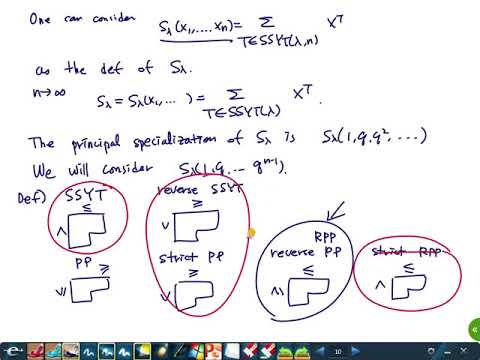 One can consider S_λ(x₁,....xₙ) = Σ_{T∈SSYT(λ,n)} x^T
as the def of S_λ.
n→∞
S_λ = S_λ(x₁,...) = Σ_{T∈SSYT(λ)} x^T.
The principal specialization of S_λ is S_λ(1,q,q²,...)
We will consider S_λ(1,q,...q^{n-1}).
Def) SSYT reverse SSYT
≤ ≥
∧ ∨
RPP
PP strict PP reverse PP strict RPP
≥ ≥ ≤ ≤
∨| ∨ ∧| ∧
10